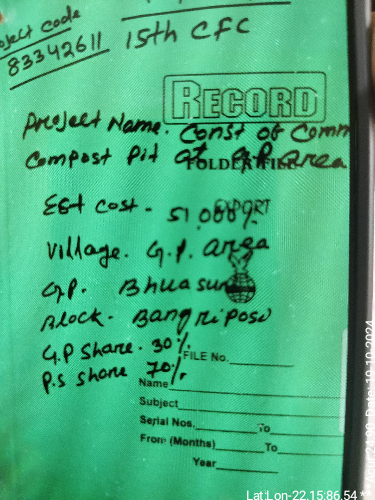 oject Code
83342611
15th CFC
RECORD
Project Name. Const of Comm
Compost Pit at G.P. Area
FOLDER FILE
Est cost - 51,000/-
EXPORT
Village. G.P. Area
G.P. Bhuasuni
Block. Bangriposi
G.P Share. 30%
P.S Share 70%
FILE No.
Name
Subject
Serial Nos. To
From (Months) To
Year
Lat Lon-22.15:86.54 *
Date: 10.10.2024